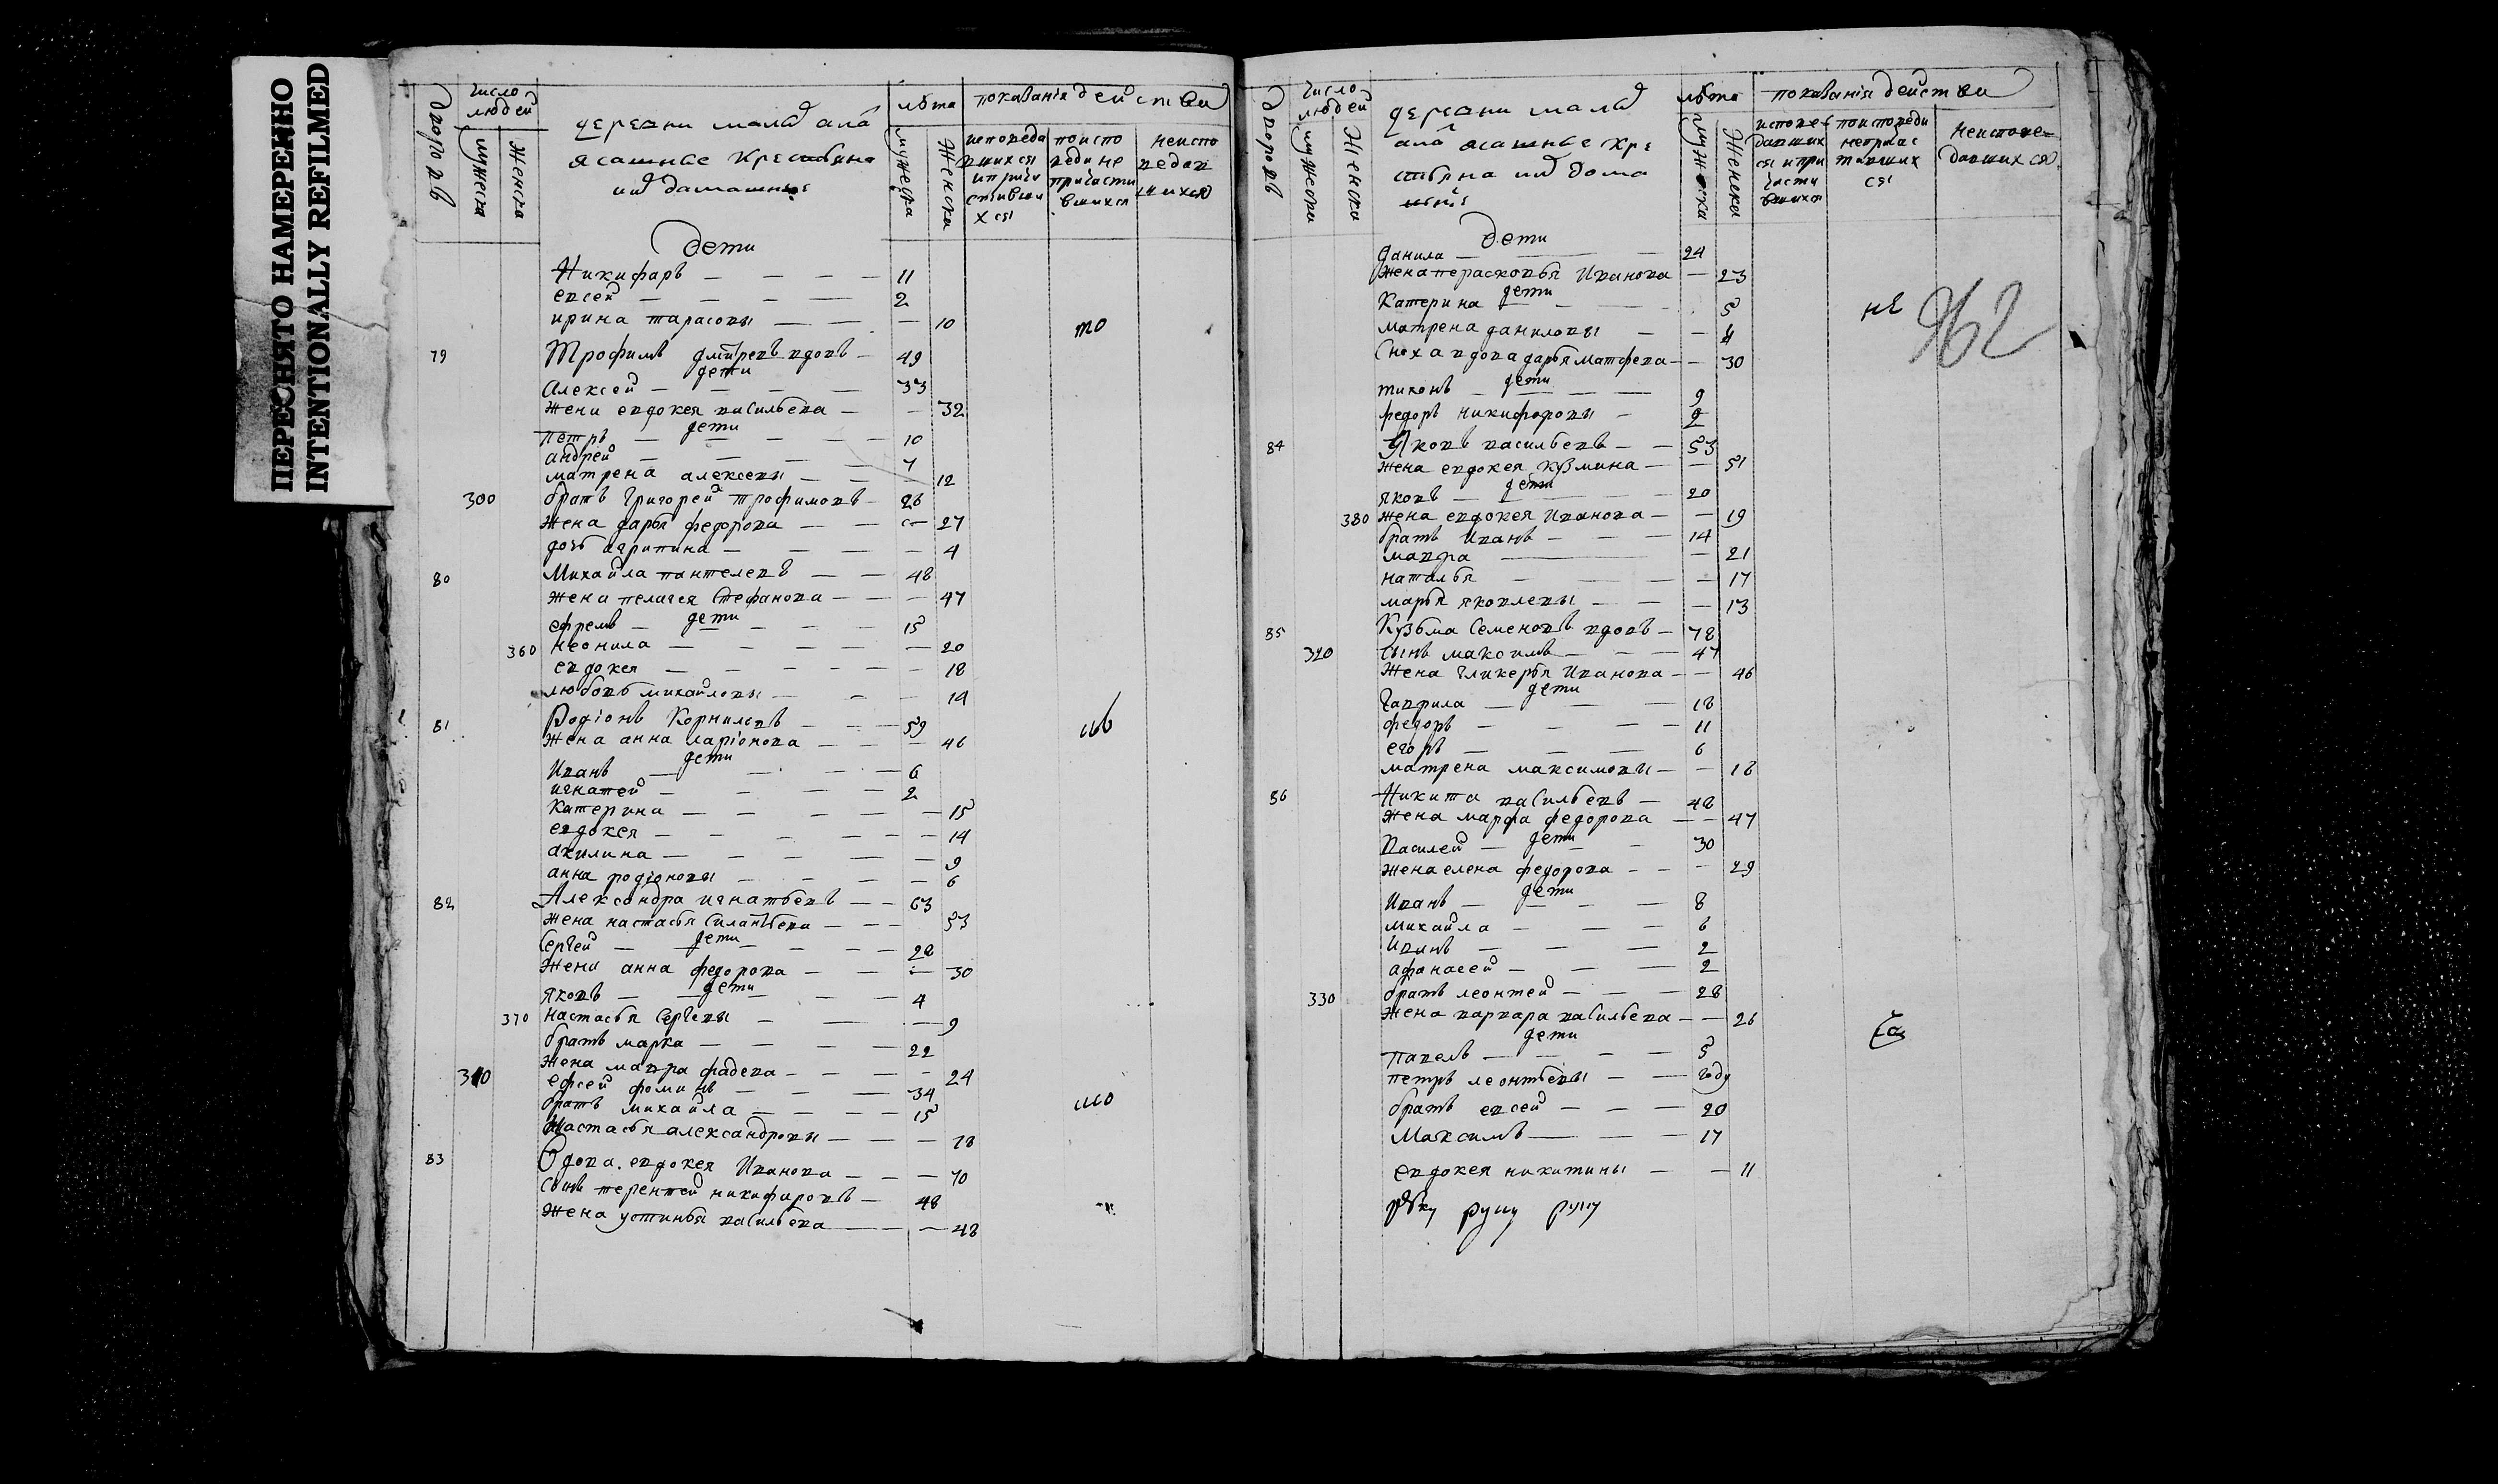 ПЕРЕСНЯТО НАМЕРЕННО
INTENTIONALLY REFILMED
дворовъ
число людей
мужеска
женска
деревни малы
ясашные крестьяна
лѣта
мужеска
женска
показанія действи
дети
Никифаръ — 11
евсей — 2
ирина тарасовы — 10
то
79 Трофимъ дмитревъ вдовъ — 49
дети
Алексей — 33
жена евдокея васильева — 32
дети
петръ — 10
андрей — 7
матрена алексевы — 12
300 братъ Григорей трофимовъ — 26
жена дарья федорова — 27
дочь агрипина — 4
80 Михайла пантелевъ — 48
жена пелагея Стефанова — 47
дети
ефремъ — 15
360 неонила — 20
евдокея — 18
любовь михайловы — 14
81 Родіонъ Корнильевъ — 59
жена анна ларіонова — 46
дети
Иванъ — 6
игнатей — 2
катерина — 15
евдокея — 14
акилина — 9
анна родіоновы — 6
82 Александра игнатьевъ — 63
жена настасья Силантьева — 53
дети
Сергей — 28
жена анна федорова — 30
дети
яковъ — 4
370 настасья Сергевы — 9
братъ марка — 22
жена мавра фадева — 24
310 ефсей фоминъ — 34
братъ михайла — 15
Настасья александровы — 18
83 Вдова евдокея Иванова — 70
Сынъ терентей никифоровъ — 48
жена устинья васильева — 48
дворовъ
число людей
мужеска
женска
деревни малы
ясашные кре
стьяна
лѣта
мужеска
женска
показанія действи
дети
данила — 24
жена перасковья Иванова — 23
дети
Катерина — 5
матрена даниловы — 4
Сноха вдова дарья матфева — 30
дети
тихонъ — 9
федоръ никифоровы — 2
84 Яковъ васильевъ — 53
жена евдокея кузмина — 51
дети
яковъ — 20
380 жена евдокея Иванова — 19
братъ Иванъ — 14
мавра — 21
наталья — 17
марья яковлевы — 13
85 Кузьма Семеновъ вдовъ — 78
320 Сынъ максимъ — 47
жена Гликерья Иванова — 46
дети
Гаврила — 18
федоръ — 11
егоръ — 6
матрена максимовы — 18
86 Никита васильевъ — 48
жена марфа федорова — 47
дети
Василей — 30
жена елена федорова — 29
дети
Иванъ — 8
михайла — 6
Иванъ — 2
афанасей — 2
330 братъ леонтей — 28
жена варвара васильева — 26
дети
павелъ — 5
петръ леонтьевы — году
братъ евсей — 20
Максимъ — 17
евдокея никитины — 11